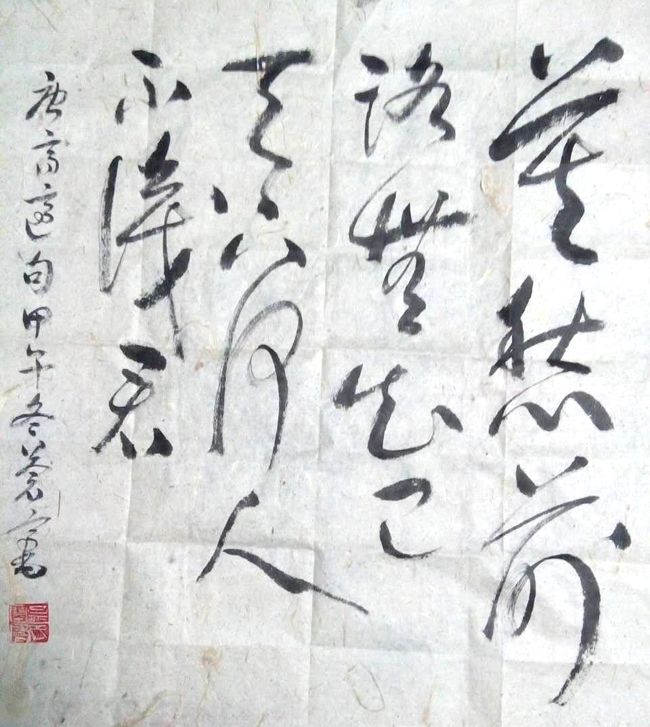 莫愁前
路無知己
天下何人
不識君
唐高適句甲午冬蒼